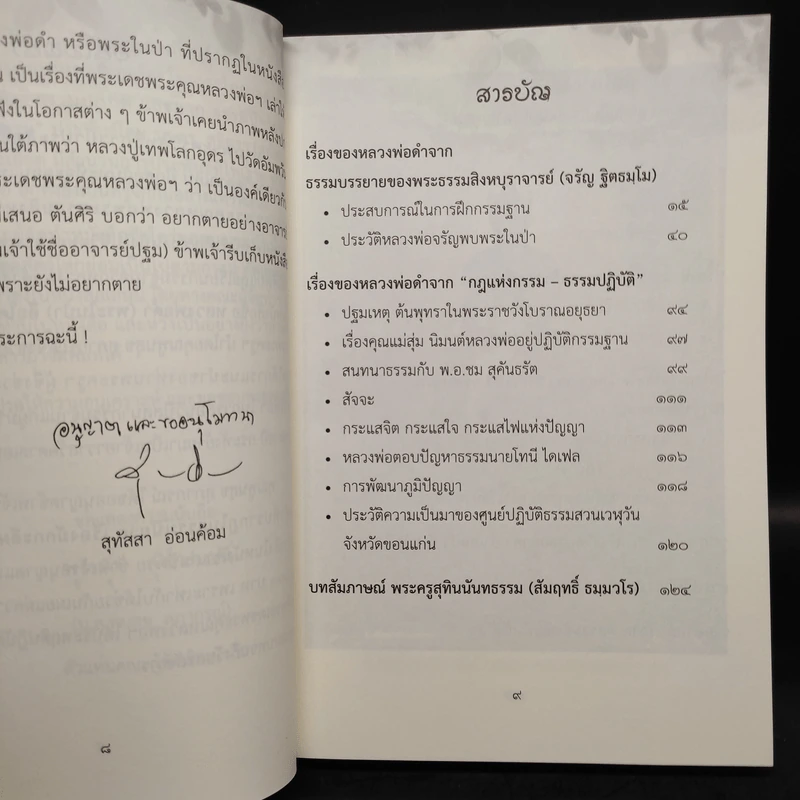 งพ่อดำ หรือพระในป่า ที่ปรากฏในหนังสือ
เป็นเรื่องที่พระเดชพระคุณหลวงพ่อฯ เล่าให้
ฟังในโอกาสต่าง ๆ ข้าพเจ้าเคยนำภาพหลังปก
นใต้ภาพว่า หลวงปู่เทพโลกอุดร ไปวัดอัมพวัน
ระเดชพระคุณหลวงพ่อฯ ว่า เป็นองค์เดียวกัน
เสนอ ตันศิริ บอกว่า อยากตายอย่างอาจาร
เจ้าใช้ชื่ออาจารย์ปฐม) ข้าพเจ้ารีบเก็บหนังสือ
พราะยังไม่อยากตาย
ระการฉะนี้ !
อนุญาต และขออนุโมทนา
สุทัสสา อ่อนค้อม
๘
สารบัญ
เรื่องของหลวงพ่อดำจาก
ธรรมบรรยายของพระธรรมสิงหบุราจารย์ (จรัญ ฐิตธมฺโม)
• ประสบการณ์ในการฝึกกรรมฐาน ๑๕
• ประวัติหลวงพ่อจรัญพบพระในป่า ๔๐
เรื่องของหลวงพ่อดำจาก “กฎแห่งกรรม – ธรรมปฏิบัติ”
• ปฐมเหตุ ต้นพุทราในพระราชวังโบราณอยุธยา ๙๔
• เรื่องคุณแม่สุ่ม นิมนต์หลวงพ่ออยู่ปฏิบัติกรรมฐาน ๙๗
• สนทนาธรรมกับ พ.อ.ชม สุคันธรัต ๙๙
• สัจจะ ๑๑๑
• กระแสจิต กระแสใจ กระแสไฟแห่งปัญญา ๑๑๓
• หลวงพ่อตอบปัญหาธรรมนายโทนี ไดเฟล ๑๑๖
• การพัฒนาภูมิปัญญา ๑๑๘
• ประวัติความเป็นมาของศูนย์ปฏิบัติธรรมสวนเวฬุวัน
จังหวัดขอนแก่น ๑๒๐
บทสัมภาษณ์ พระครูสุทินนันทธรรม (สัมฤทธิ์ ธมฺมวโร) ๑๒๔
๙